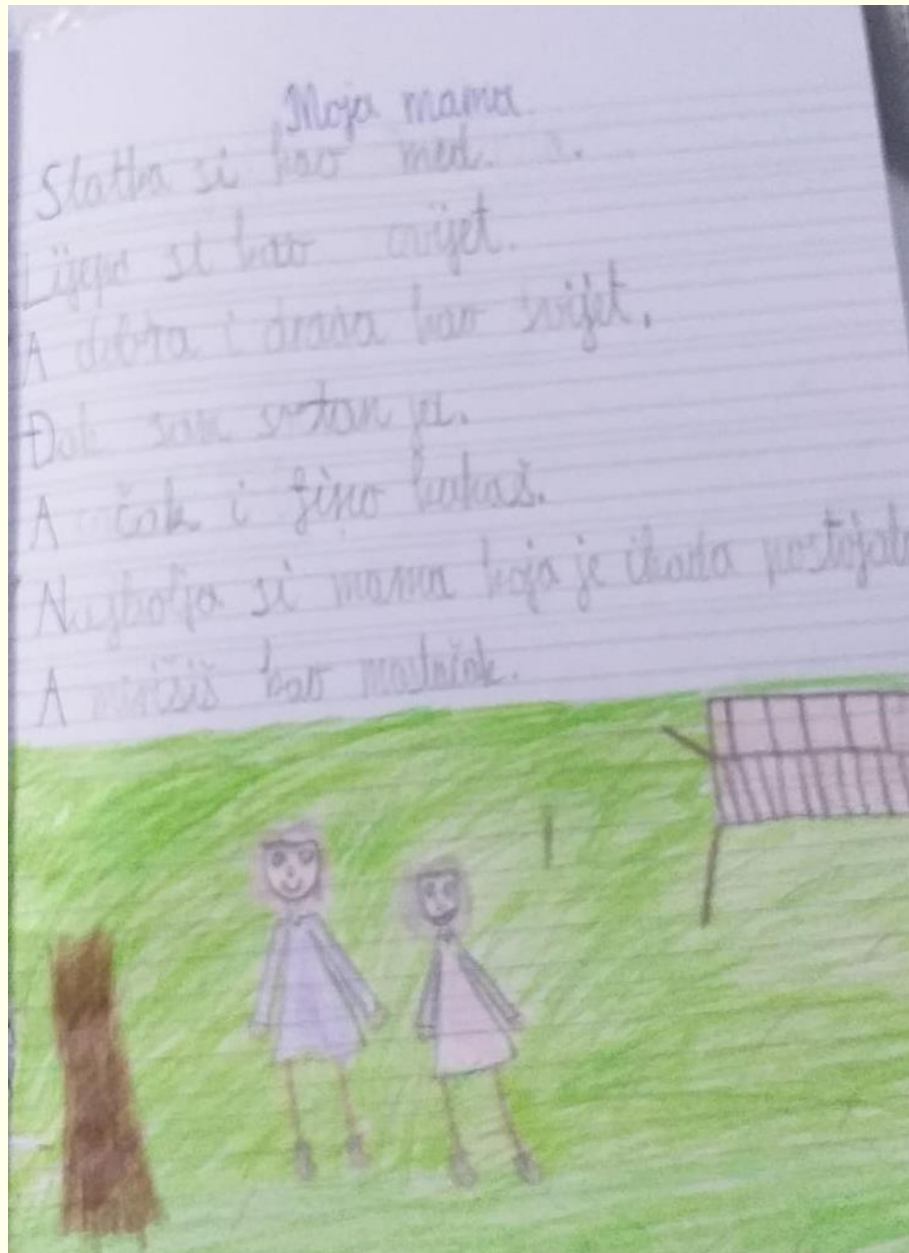 Moja mama
Slatka si kao med.
Lijepa si kao cvijet.
A dobra i draga kao svijet.
Dok sam
A čak i fino kuhaš.
Najbolja si mama koja je ikada postojala
A mirišiš kao maslačak.